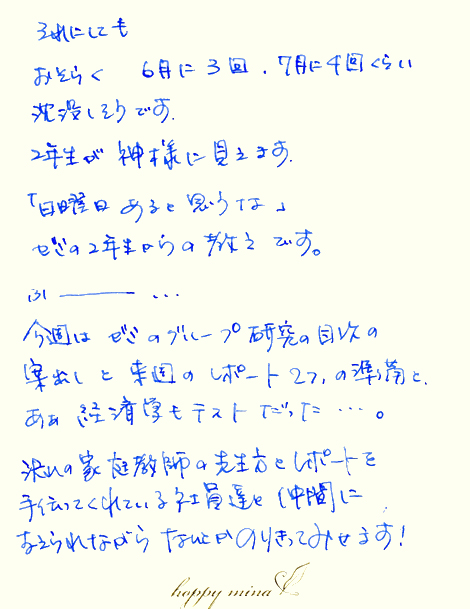 それにしても
おそらく 6月に3回、7月に4回くらい
沈没しそうです。
2年生が神様に見えます。
「日曜日あると思うな」
ゼミの2年生からの教えです。
ふぃ———…
今週はゼミのグループ研究の目次の
案出しと来週のレポート2つの準備と、
あぁ経済学もテストだった…。
家庭教師の先生方とレポートを
手伝ってくれている社員達と仲間に
支えられながらなんとかのりきってみせます!
happy mina